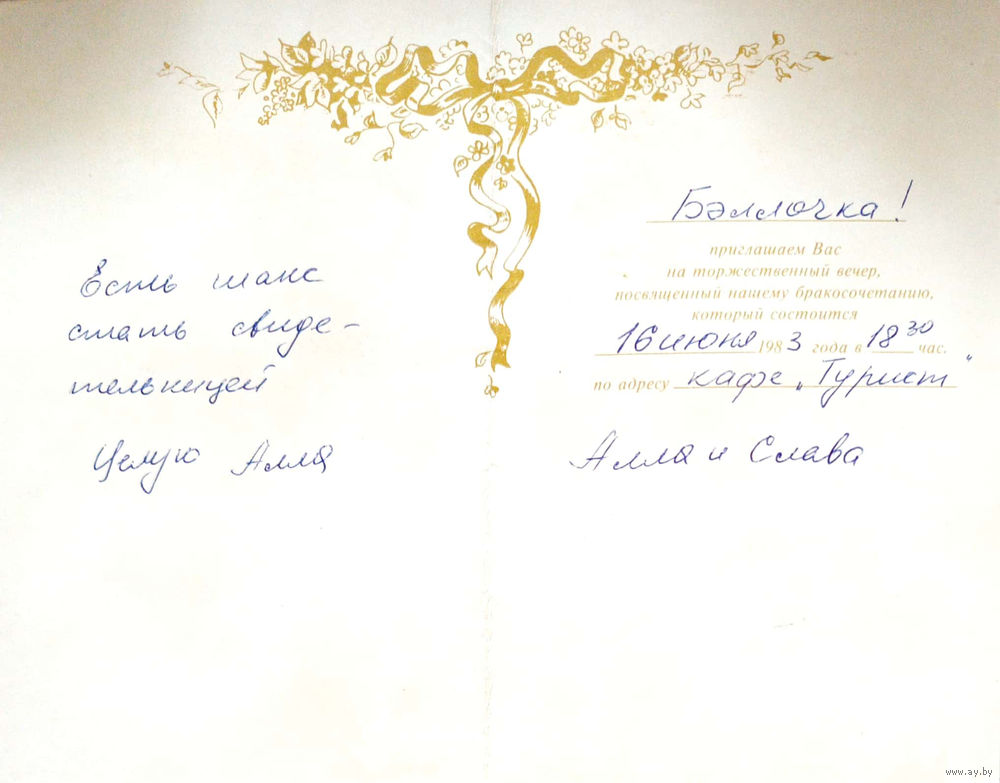 Есть шанс
стать свиде-
тельницей
Целую Алла
Бэллочка!
приглашаем Вас
на торжественный вечер,
посвященный нашему бракосочетанию,
который состоится
16 июня 1983 года в 18 30 час.
по адресу кафе „Турист"
Алла и Слава
www.ay.by